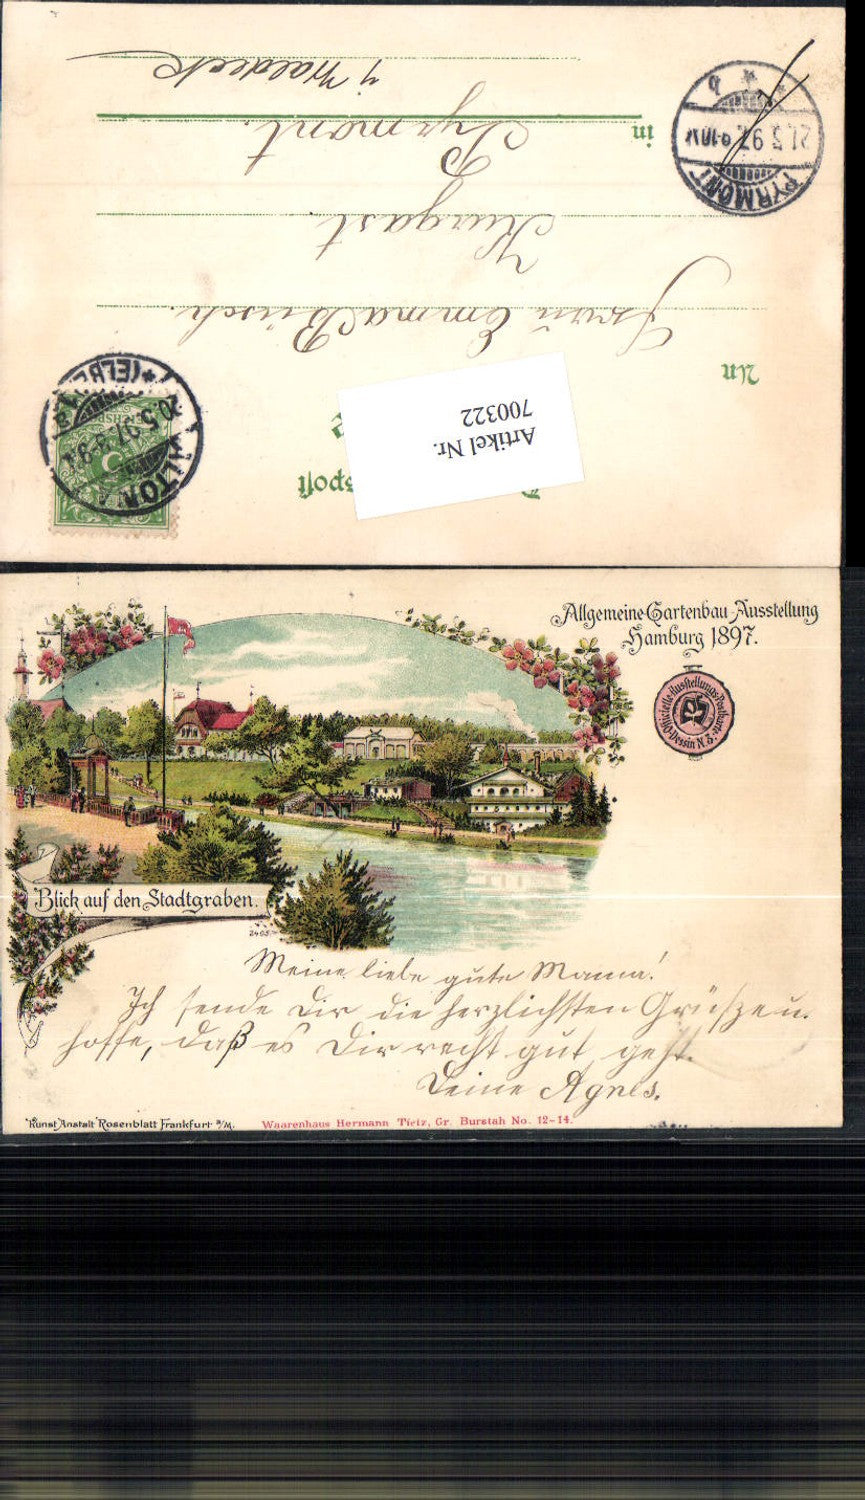 Deutsche Reichspost
Artikel Nr.
700322
An
Frau Emma Büsch.
Kurgast
in
Pyrmont.
i/ Waldeck
ALTONA
*(ELBE)
20.5.97
PYRMONT
21.5.97 9-10V.
* b
Allgemeine Gartenbau-Ausstellung
Hamburg 1897.
Officielle Ausstellungs-Postkarte
Dessin N. 3:
Blick auf den Stadtgraben.
2403.
Meine liebe gute Mama!
Ich sende Dir die herzlichsten Grüße u.
hoffe, daß es Dir recht gut geht.
Deine Agnes.
Kunst Anstalt Rosenblatt Frankfurt a/M.
Waarenhaus Hermann Tietz, Gr. Burstah No. 12-14.